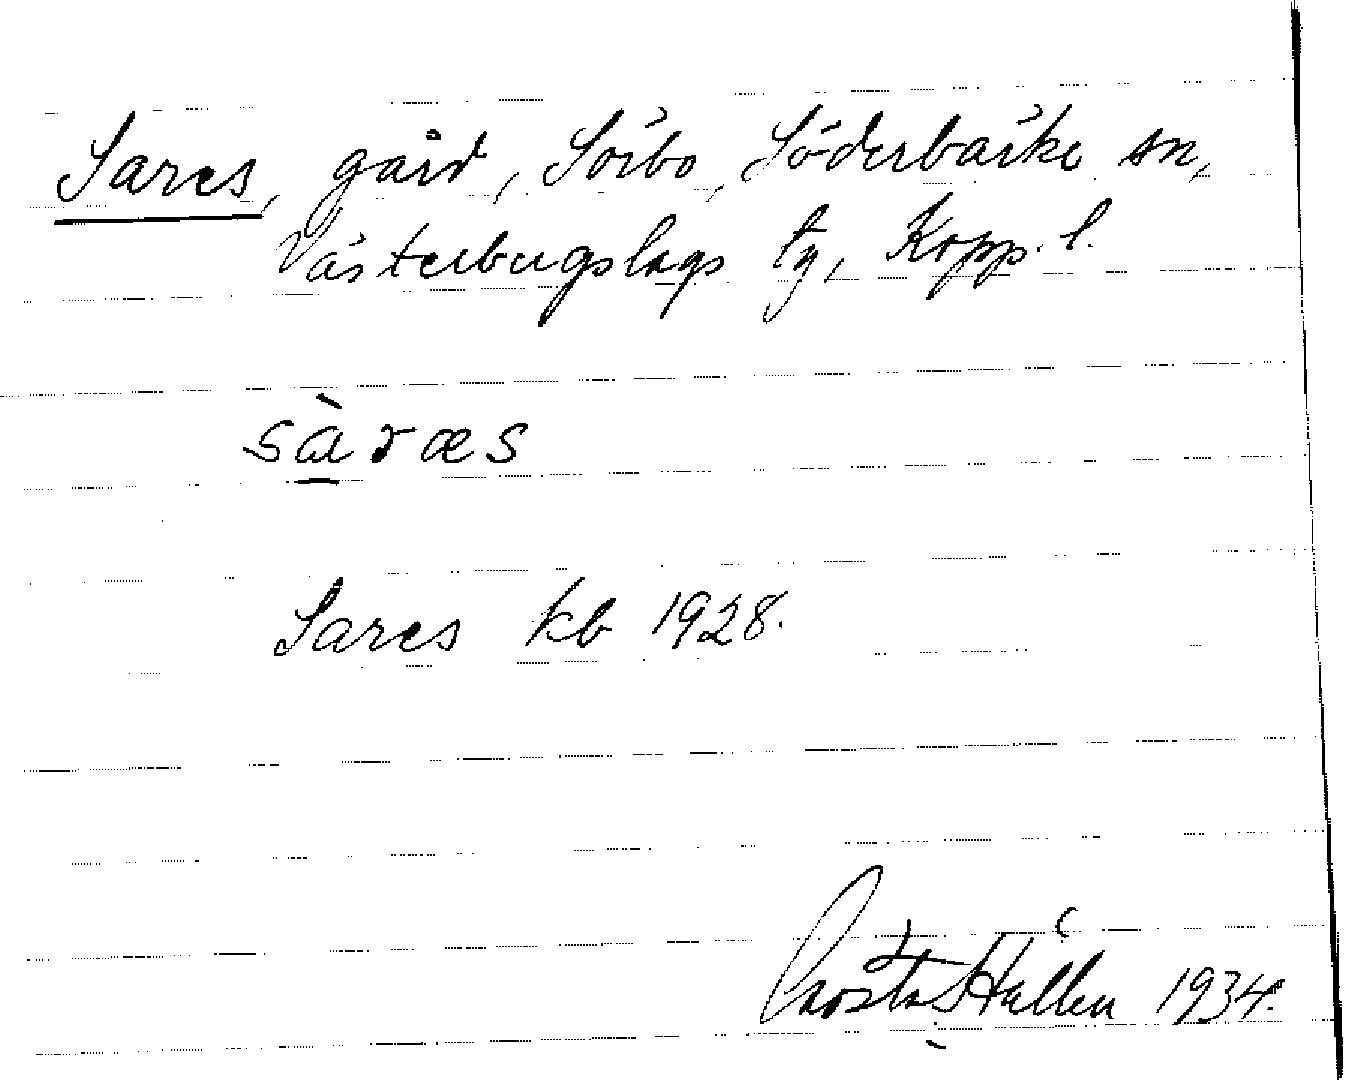 Sares, gård, Sörbo, Söderbärke sn,
Västerbergslags tg, Kopp. l.
sàræs
Sares kb 1928.
Hallén 1934.